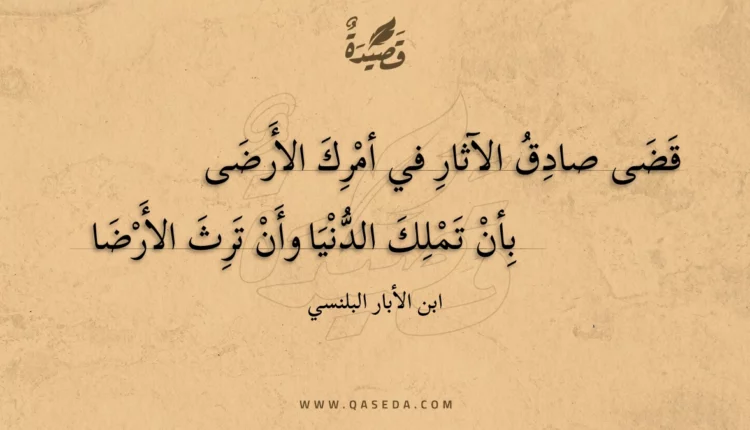 قَصِيْدَةٌ
قَضَى صادِقُ الآثارِ في أمْرِكَ الأَرضَى
بِأنْ تَمْلِكَ الدُّنْيَا وأَنْ تَرِثَ الأَرْضَا
ابن الأبار البلنسي
WWW.QASEDA.COM